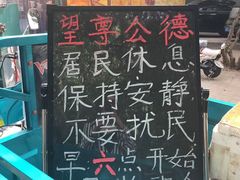 望尊公德
居民休息
保持安静
不要扰民
早六点开始